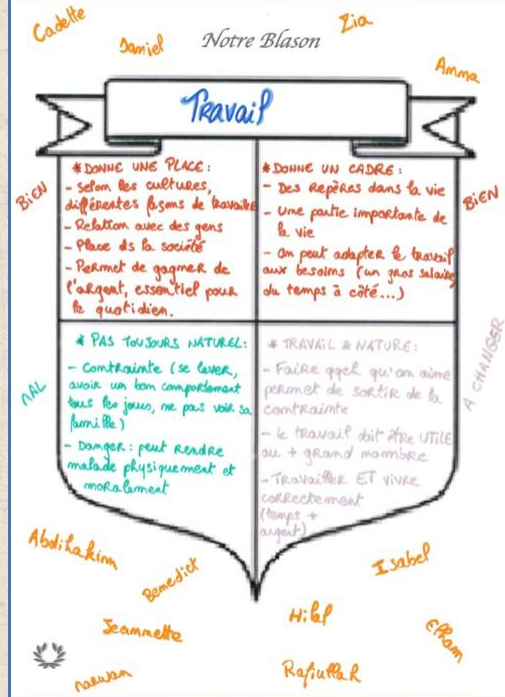 Cadette
Daniel
Notre Blason
Zia
Amma
Travail
BIEN
* DONNE UNE PLACE :
- Selon les cultures,
différentes façons de travailler
- Relation avec des gens
- Place ds la société
- Permet de gagner de
l'argent, essentiel pour
le quotidien.
* DONNE UN CADRE :
- Des repères dans la vie
- Une partie importante de
la vie
- On peut adapter le travail
aux besoins (un gros salaire,
du temps à côté...)
BIEN
MAL
* PAS TOUJOURS NATUREL :
- Contrainte (se lever,
avoir un bon comportement
tous les jours, ne pas voir sa
famille)
- Danger : peut rendre
malade physiquement et
moralement
* TRAVAIL & NATURE :
- Faire qqch qu'on aime
permet de sortir de la
contrainte
- le travail doit être UTILE
au + grand nombre
- TRAVAILLER ET VIVRE
correctement
(temps +
argent)
A CHANGER
Abdihakim
Benedict
Isabel
Jeannette
Hilal
Efram
Marwan
Rafiullah